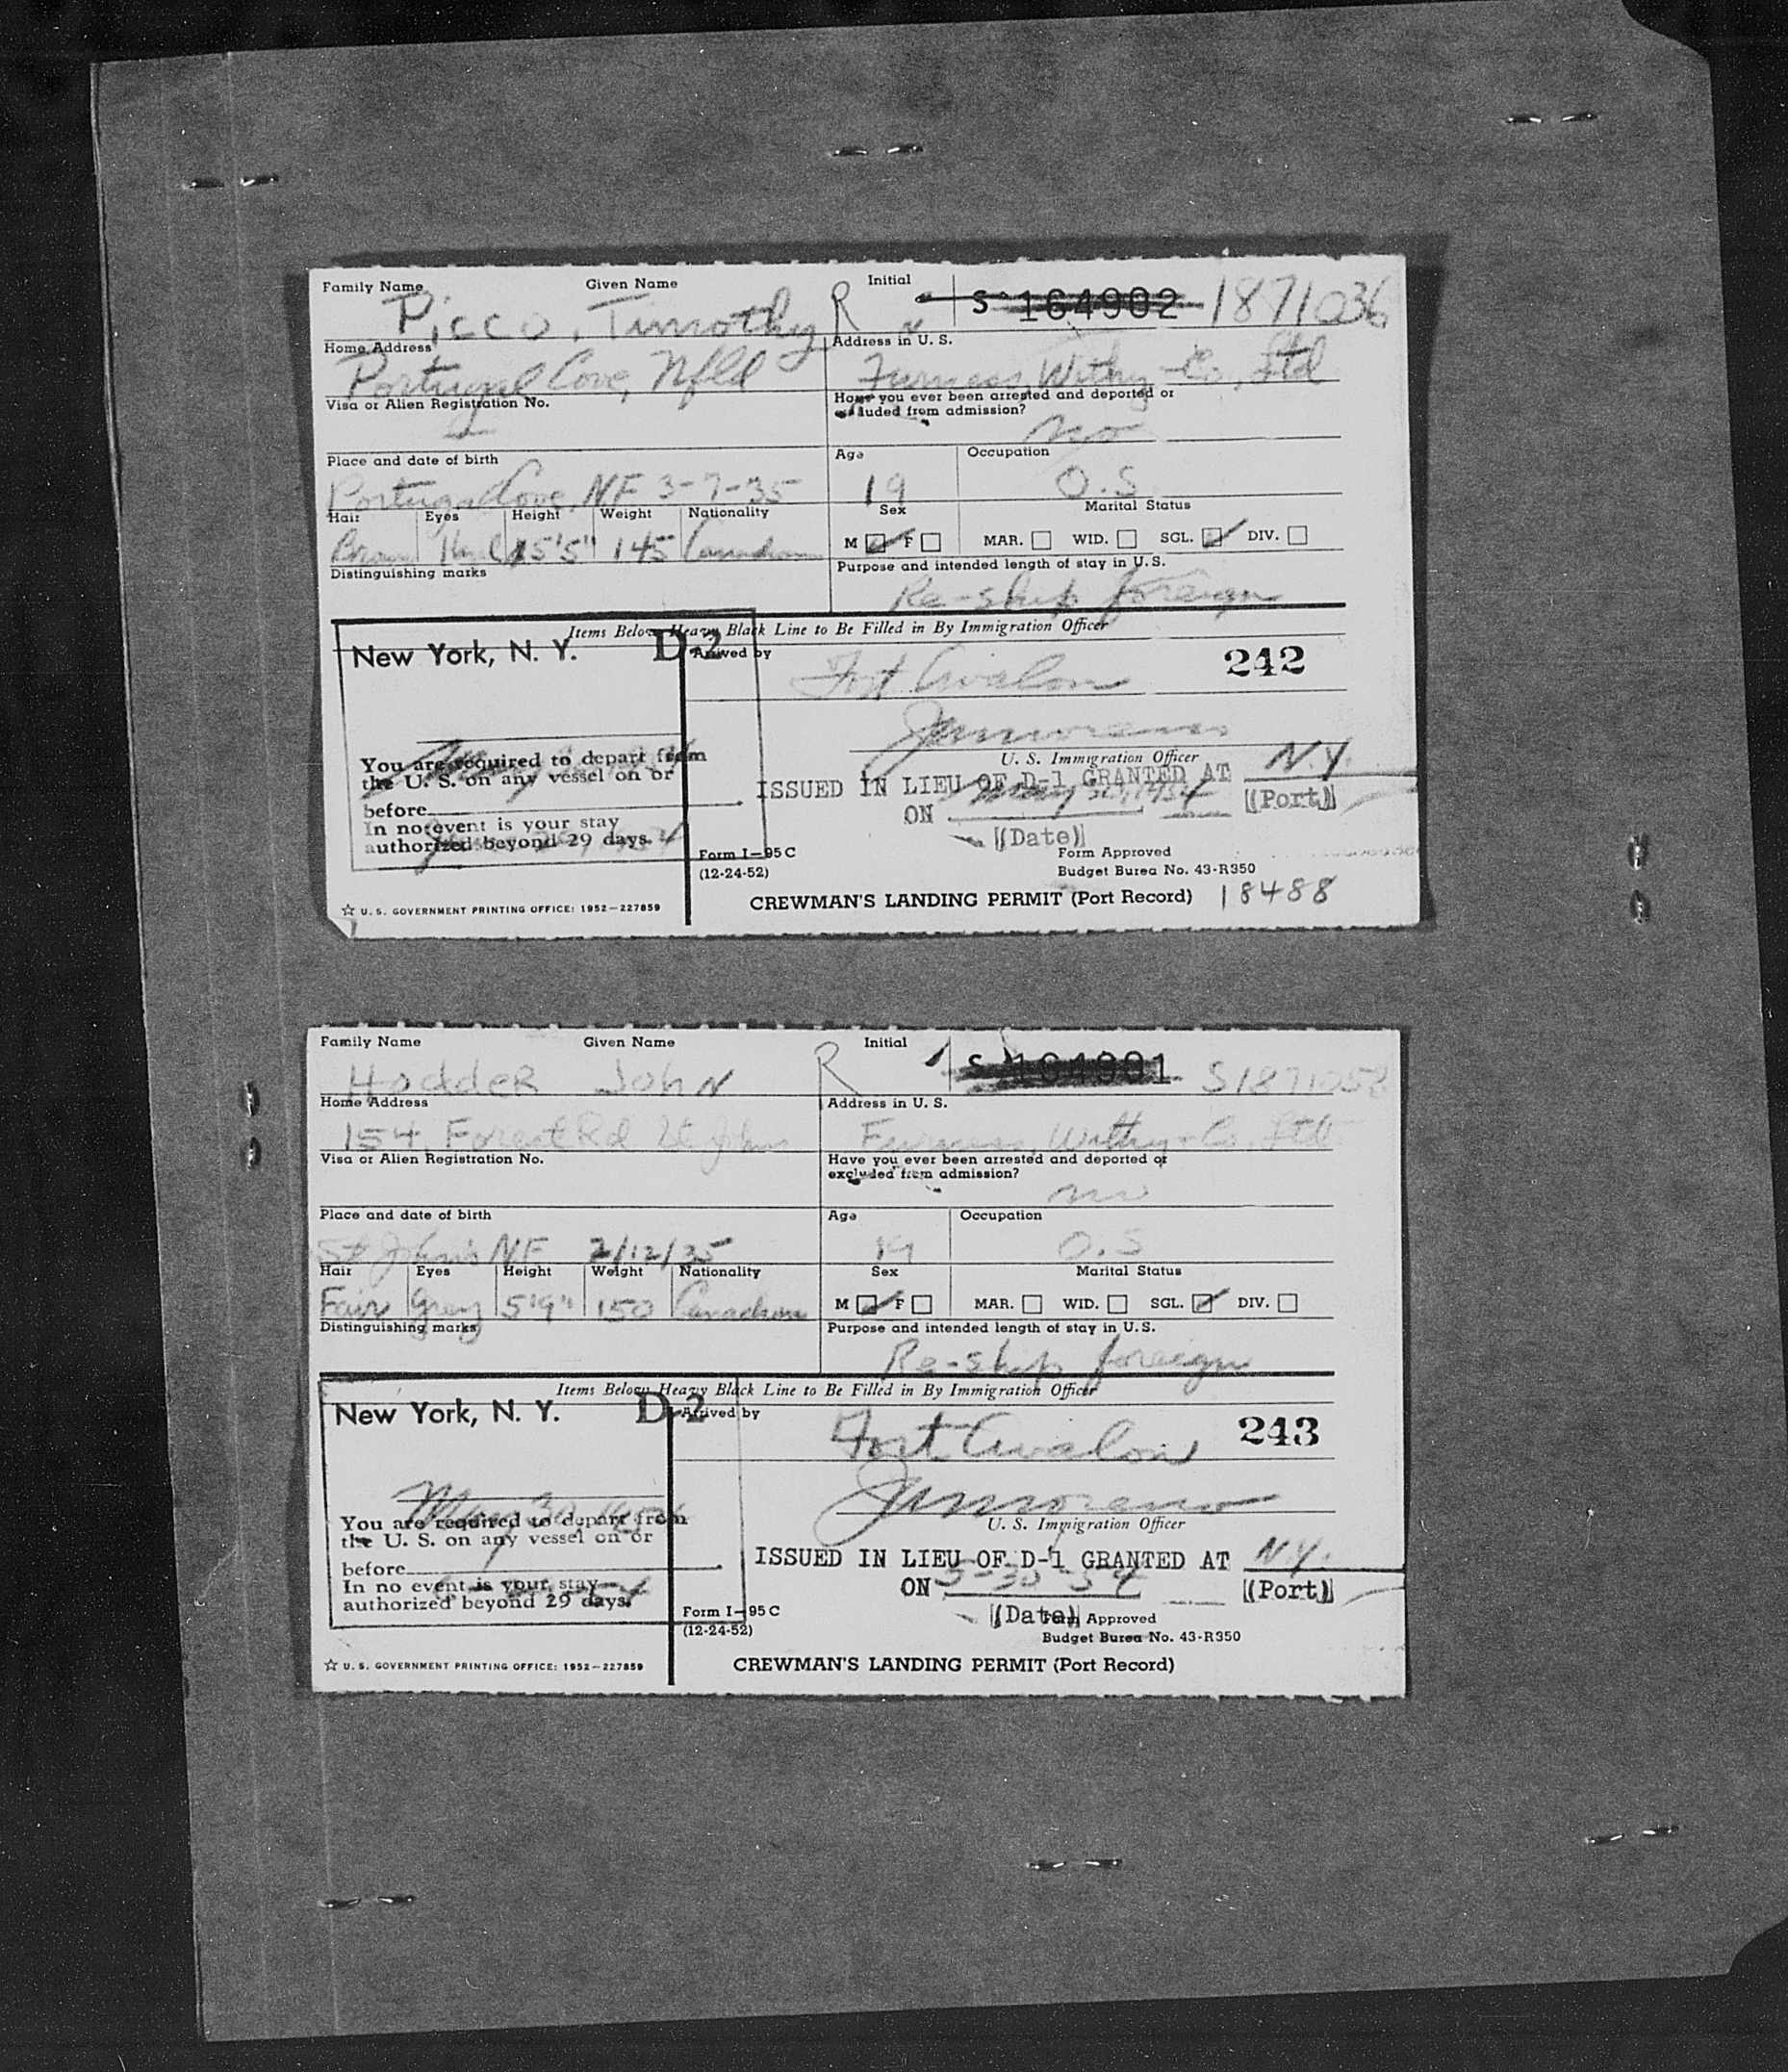 Family Name Given Name Initial
Picco, Timothy R S 164902 1871036
Home Address Address in U. S.
Portugal Cove, Nfld Furness, Withy Co., Ltd
Visa or Alien Registration No. Have you ever been arrested and deported or
excluded from admission?
no
Place and date of birth Age Occupation
Portugal Cove, NF 3-7-35 19 O.S
Hair Eyes Height Weight Nationality Sex Marital Status
Brown 5'5" 145 Canadian M F MAR. WID. SGL. DIV.
Distinguishing marks Purpose and intended length of stay in U.S.
Re-ship foreign
Items Below Heavy Black Line to Be Filled in By Immigration Officer
New York, N. Y. D-2 Arrived by Fort Avalon 242
You are required to depart from U. S. Immigration Officer
the U. S. on any vessel on or ISSUED IN LIEU OF D-1 GRANTED AT N.Y.
before ON May 30, 1954 (Port)
In no event is your stay (Date)
authorized beyond 29 days. Form I-95 C Form Approved
(12-24-52) Budget Burea No. 43-R350
☆ U. S. GOVERNMENT PRINTING OFFICE: 1952-227859 CREWMAN'S LANDING PERMIT (Port Record) 18488
Family Name Given Name Initial
Hodder John R S 164901 S1871058
Home Address Address in U. S.
154 Forest Rd St Johns Furness, Withy + Co., Ltd
Visa or Alien Registration No. Have you ever been arrested and deported or
excluded from admission?
no
Place and date of birth Age Occupation
St John's NF 2/12/35 19 O.S
Hair Eyes Height Weight Nationality Sex Marital Status
Fair Grey 5'9" 150 Canadian M F MAR. WID. SGL. DIV.
Distinguishing marks Purpose and intended length of stay in U.S.
Re-ship foreign
Items Below Heavy Black Line to Be Filled in By Immigration Officer
New York, N. Y. D-2 Arrived by Fort Avalon 243
May 30, 1954
You are required to depart from U. S. Immigration Officer
the U. S. on any vessel on or ISSUED IN LIEU OF D-1 GRANTED AT N.Y.
before ON 5-30-54 (Port)
In no event is your stay (Date)
authorized beyond 29 days. Form I-95 C Form Approved
(12-24-52) Budget Burea No. 43-R350
☆ U. S. GOVERNMENT PRINTING OFFICE: 1952-227859 CREWMAN'S LANDING PERMIT (Port Record)